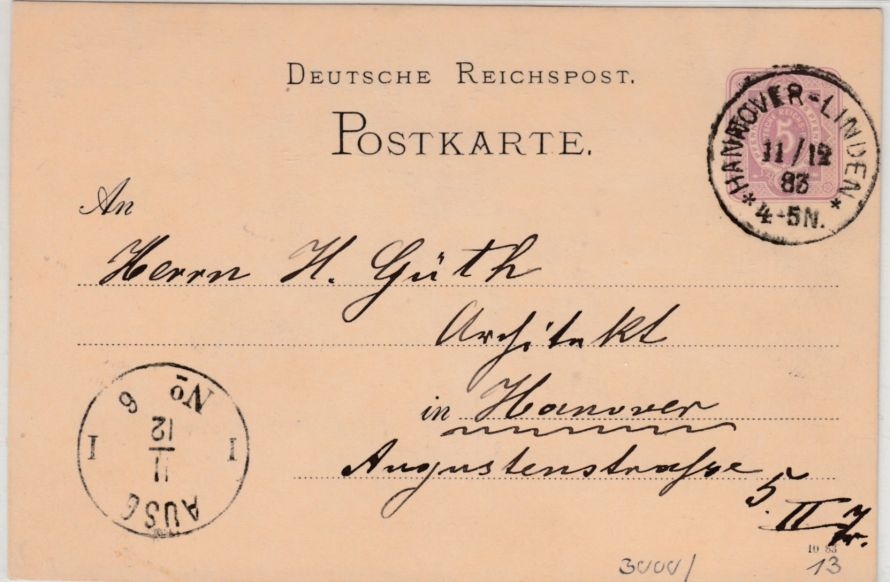 DEUTSCHE REICHSPOST.
POSTKARTE.
5
HANNOVER-LINDEN
11/12
83
*4-5N.*
An
Herrn H. Güth
Architekt
in Hanover
Augustenstraße
5. II
No 6
I I
11
12
AUSG
10 83
3000/ 13